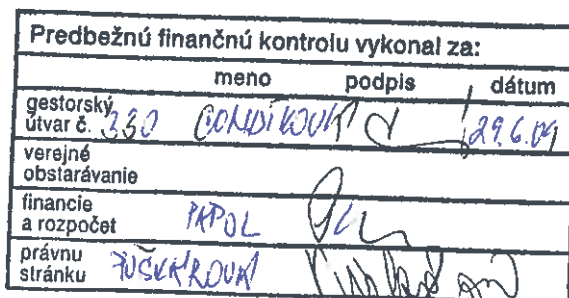 Predbežnú finančnú kontrolu vykonal za:
meno podpis dátum
gestorský
útvar č. 330 29.6.09
verejné
obstarávanie
financie
a rozpočet PAPOL
právnu
stránku PUŠKÁROVÁ